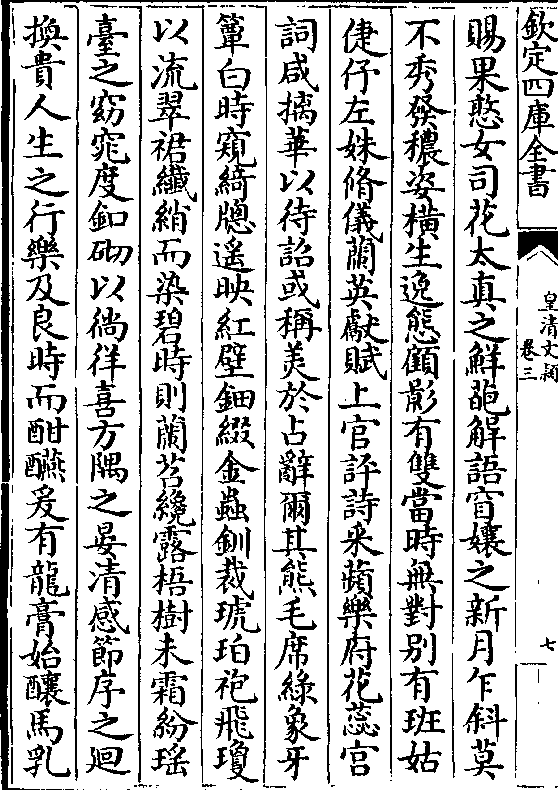 欽定四庫全書
皇清文穎
卷三
七
賜果憨女司花太真之鮮葩解語窅孃之新月乍斜莫
不秀發穠姿橫生逸態顧影有雙當時無對别有班姑
倢伃左妹脩儀蘭英獻賦上官評詩采蘋樂府花蕊宮
詞咸摛華以待詔或稱美於占辭爾其熊毛席綠象牙
簟白時窺綺牕遙映紅壁鈿綴金蟲釧裁琥珀袍飛瓊
以流翠裙纖綃而染碧時則蘭苕纔露梧樹未霜紛瑤
臺之窈窕度釦砌以徜徉喜方隅之晏清感節序之迴
換貴人生之行樂及良時而酣醼爰有龍膏始釀馬乳